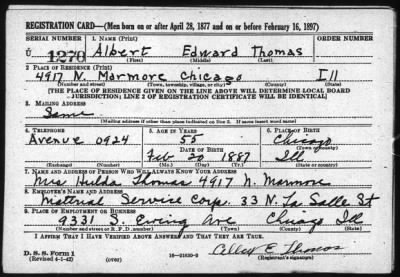 REGISTRATION CARD—(Men born on or after April 28, 1877 and on or before February 16, 1897)
SERIAL NUMBER 1. NAME (Print) ORDER NUMBER
U 1270 Albert Edward Thomas
(First) (Middle) (Last)
2. PLACE OF RESIDENCE (Print)
4917 N. Marmore Chicago Ill
(Number and street) (Town, township, village, or city) (County) (State)
[THE PLACE OF RESIDENCE GIVEN ON THE LINE ABOVE WILL DETERMINE LOCAL BOARD
JURISDICTION; LINE 2 OF REGISTRATION CERTIFICATE WILL BE IDENTICAL]
3. MAILING ADDRESS
Same
[Mailing address if other than place indicated on line 2. If same insert word same]
4. TELEPHONE 5. AGE IN YEARS 6. PLACE OF BIRTH
Avenue 0924 55 Chicago
DATE OF BIRTH (Town or county)
Feb 20 1887 Ill
(Exchange) (Number) (Mo.) (Day) (Yr.) (State or country)
7. NAME AND ADDRESS OF PERSON WHO WILL ALWAYS KNOW YOUR ADDRESS
Mrs. Hilda Thomas 4917 N. Marmore
8. EMPLOYER'S NAME AND ADDRESS
Mutual Service Corp. 33 N. La Salle St
9. PLACE OF EMPLOYMENT OR BUSINESS
9331 S. Ewing Ave Chicago Ill
(Number and street or R. F. D. number) (Town) (County) (State)
I AFFIRM THAT I HAVE VERIFIED ABOVE ANSWERS AND THAT THEY ARE TRUE.
D. S. S. Form 1 Albert E. Thomas
(Revised 4-1-42) (over) 16—21630-2